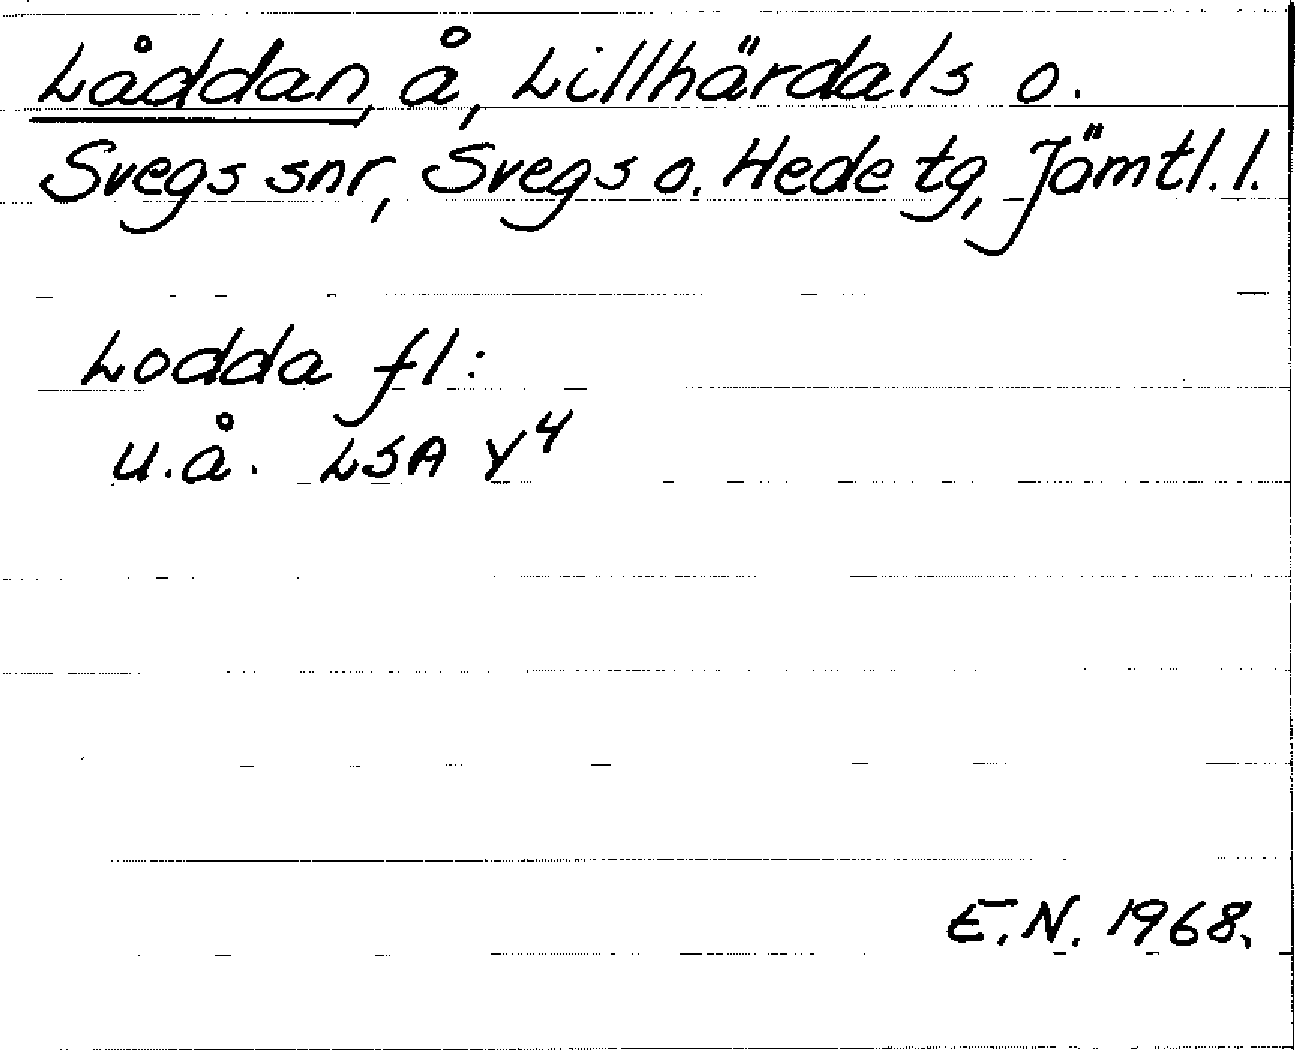 Låddan, å, Lillhärdals o.
Svegs snr, Svegs o. Hede tg, Jämtl. l.
Lodda fl:
u.å. LSA Y⁴
E.N. 1968.